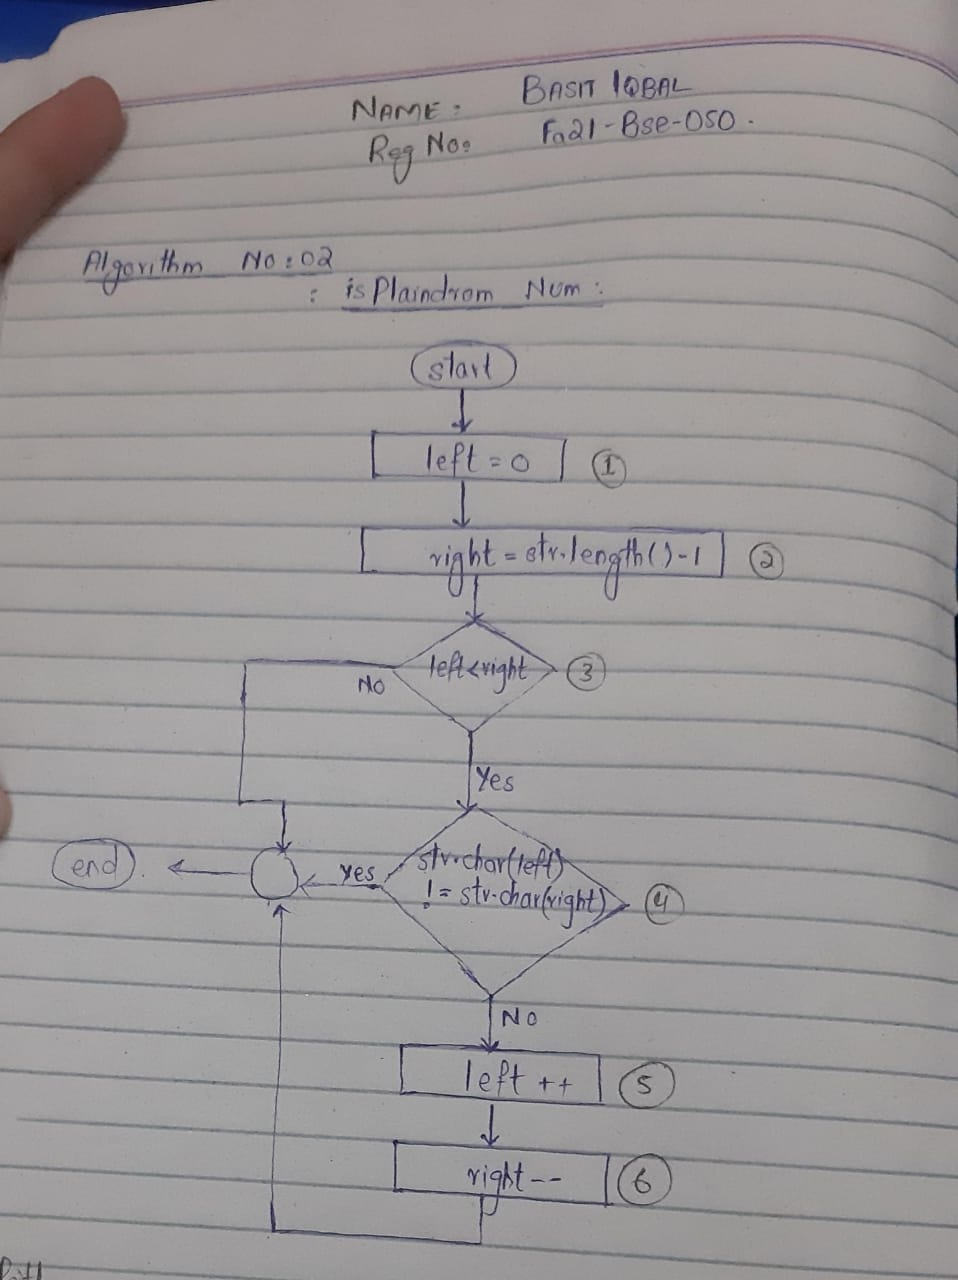 NAME: BASIT IQBAL
Reg No: Fa21-Bse-050.
Algorithm No:02
: is Plaindrom Num:
start
left = 0 1
right = str.length()-1 2
left<right 3
No
Yes
str.char(left)
!= str.char(right) 4
yes
end.
No
left ++ 5
right-- 6